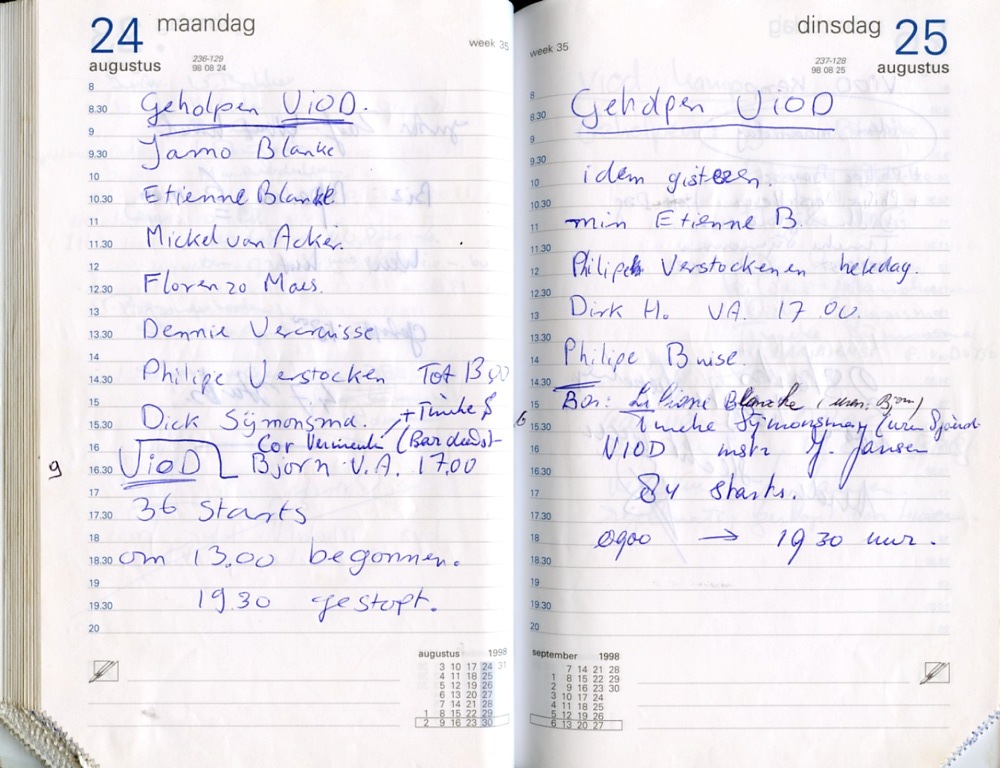 24 maandag
augustus
236-129
98 08 24
week 35
8
8.30 Geholpen ViOD.
9
9.30 Jarno Blanke
10
10.30 Etienne Blanke
11
11.30 Mickel van Acker.
12
12.30 Florenzo Maes.
13
13.30 Dennie Vercruisse
14
14.30 Philipe Verstocken Tot 1300
15
15.30 Dick Sijmonsma. + Tineke S
16 Cor Vermeule (Bardienst)
9
16.30 ViOD Bjorn V.A. 17.00
17
17.30 36 Starts
18
18.30 om 13.00 begonnen.
19
19.30 19.30 gestopt.
20
augustus 1998
3 10 17 24 31
4 11 18 25
5 12 19 26
6 13 20 27
7 14 21 28
1 8 15 22 29
2 9 16 23 30
dinsdag 25
augustus
237-128
98 08 25
week 35
8
8.30 Geholpen ViOD
9
9.30
10 idem gisteren.
10.30
11 min Etienne B.
11.30
12 Philipe Verstockenen heledag.
12.30
13 Dirk H. VA. 17 00.
13.30
14 Philipe Buise.
14.30
15 Bar: Liliane Blancke
6
15.30 Tineke Sijmonsma
16 VIOD instr J. Jansen
16.30
17 84 starts.
17.30
18 0900 → 19 30 uur.
18.30
19
19.30
20
september 1998
7 14 21 28
1 8 15 22 29
2 9 16 23 30
3 10 17 24
4 11 18 25
5 12 19 26
6 13 20 27